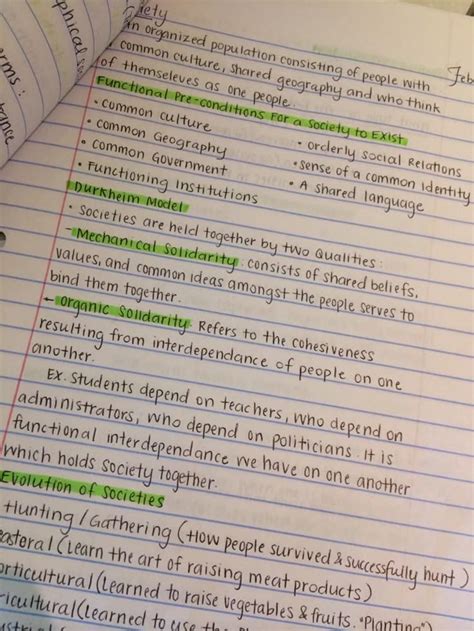 ciety
an organized population consisting of people with
common culture, shared geography and who think
of themseleves as one people.
Feb
Functional Pre-conditions For a Society to Exist
• common culture
• common Geography
• common Government
• Functioning Institutions
• orderly social Relations
• sense of a common identity
• A shared language
Durkheim Model
• Societies are held together by two Qualities:
- Mechanical Solidarity: consists of shared beliefs,
values, and common ideas amongst the people serves to
bind them together.
- Organic Solidarity. Refers to the cohesiveness
resulting from interdependance of people on one
another.
Ex. Students depend on teachers, who depend on
administrators, who depend on politicians. It is
functional interdependance we have on one another
which holds society together.
Evolution of Societies
Hunting / Gathering (How people survived & successfully hunt)
astoral (Learn the art of raising meat products)
orticultural (Learned to raise vegetables & fruits. "Planting")
ricultural (Learned to use the